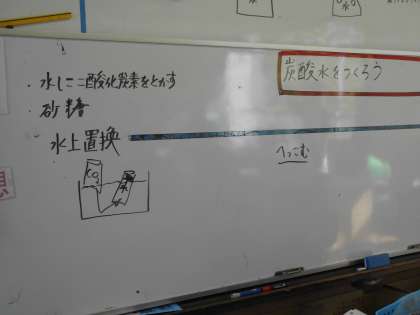 炭酸水をつくろう
・水に二酸化炭素をとかす
・砂糖
水上置換
へこむ
CO2